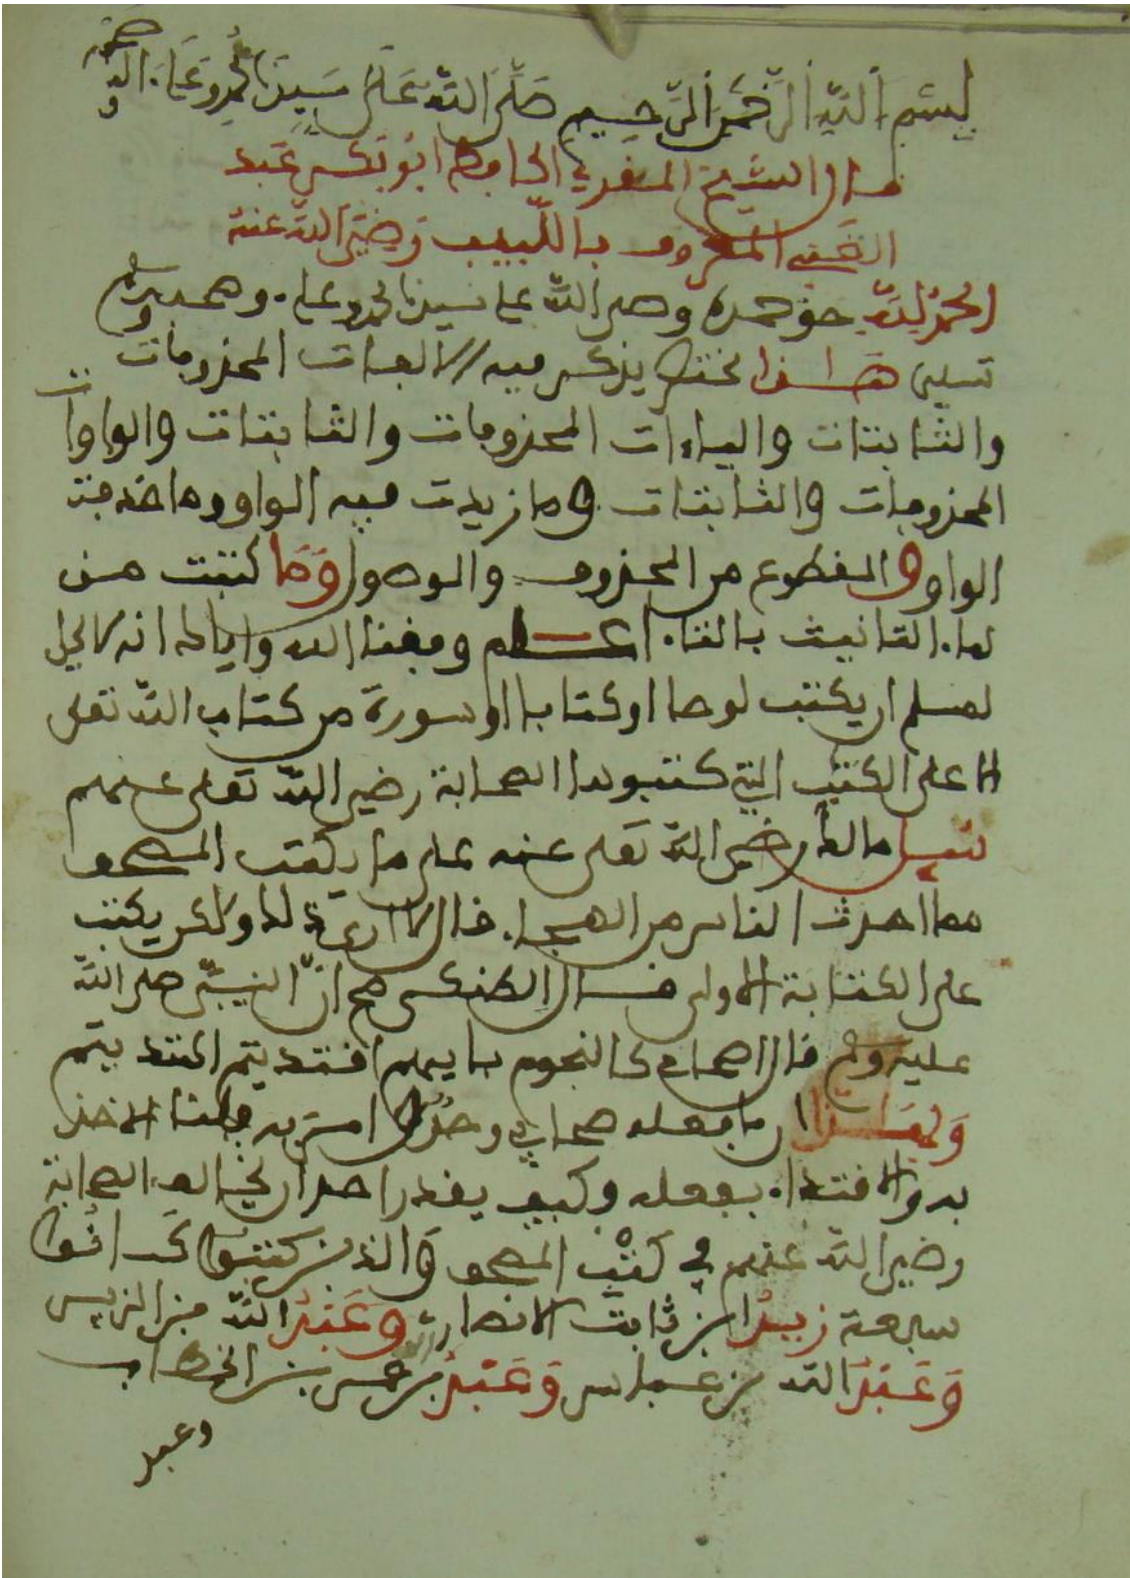 بسم الله الرحمن الرحيم صلى الله على سيدنا محمد وعلى ءاله وصحبه
قال الشيخ المقري الحافظ ابو بكر عبد
الغني المعروف باللبيب رضي الله عنه
الحمد لله حق حمده وصلى الله على سيدنا محمد وعلى وصحبه وسلم
هاذا مختصر يذكر فيه الالفات المحذوفات
والثابتات والياءات المحذوفات والثابتات والواوات
المحذوفات والثابتات وما زيدت فيه الواو وما حذفت
الواو والمقطوع من المحذوف والموصول وما كتبت من
هاء التانيث بالتاء اعلم وفقنا الله واياك انه لا يحل
لمسلم ان يكتب لوحا او كتابا او سورة من كتاب الله تعلى
الا على الكتب التي كتبوها الصحابة رضي الله تعلى عنهم
سيل مالك رضي الله تعلى عنه على ما يكتب المصحف
مما احدث الناس من الهجاء قال لا ارى ذلك ولاكن يكتب
على الكتبة الاولى قال الطلمنكي صح ان النبي صلى الله
عليه وسلم قال اصحابي كالنجوم بايهم اقتديتم اهتديتم
ولهاذا ان ما فعله صحابي وحده امرنا به قلنا الاخذ
به والاقتداء بفعله وكيف يقدر احد ان يخالف الصحابة
رضي الله عنهم في كتب المصحف والذين كتبوا كانوا
سبعة زيد ابن ثابت الانصاري وعبد الله بن الزبير
وعبد الله بن عباس وعبد بن عمر بن الخطاب
وعبد